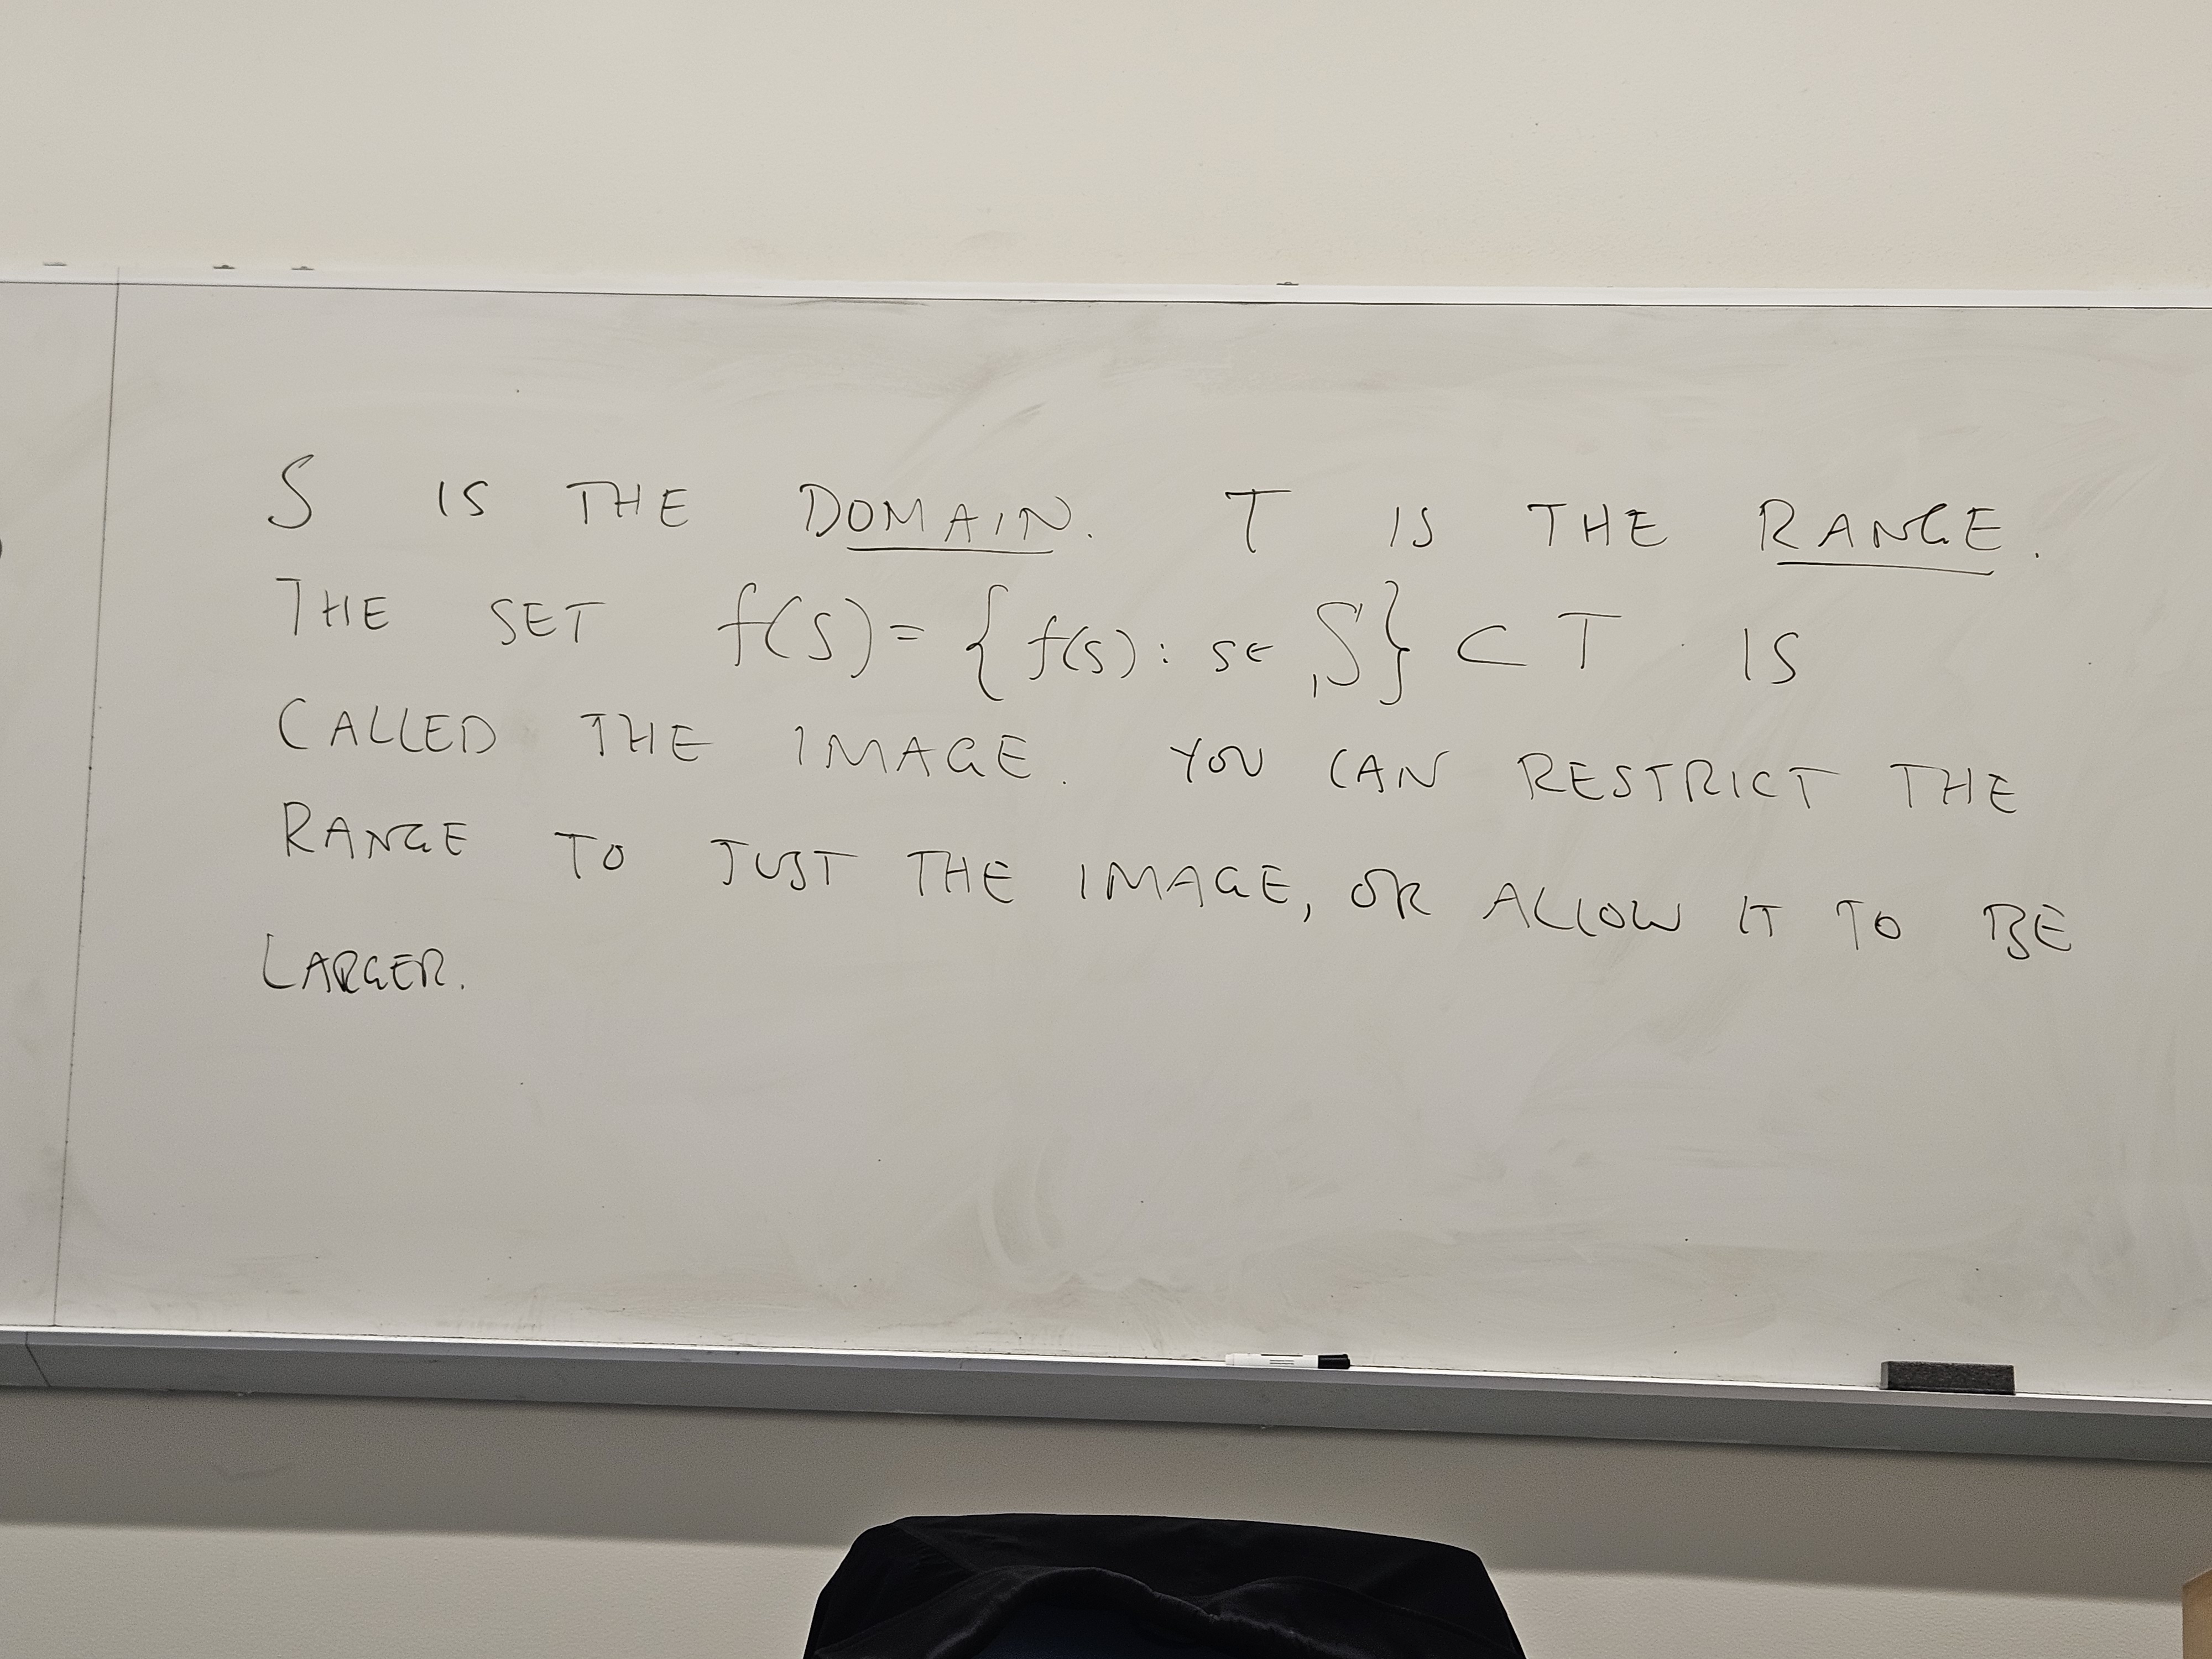 S IS THE DOMAIN. T IS THE RANGE.
THE SET f(S) = {f(s): s∈ S} ⊂ T IS
CALLED THE IMAGE. YOU CAN RESTRICT THE
RANGE TO JUST THE IMAGE, OR ALLOW IT TO BE
LARGER.